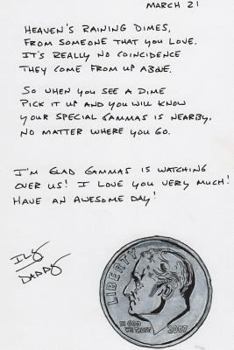 MARCH 21
HEAVEN'S RAINING DIMES,
FROM SOMEONE THAT YOU LOVE.
IT'S REALLY NO COINCIDENCE
THEY COME FROM UP ABOVE.
SO WHEN YOU SEE A DIME
PICK IT UP AND YOU WILL KNOW
YOUR SPECIAL GAMMAS IS NEARBY,
NO MATTER WHERE YOU GO.
I'M GLAD GAMMAS IS WATCHING
OVER US! I LOVE YOU VERY MUCH!
HAVE AN AWESOME DAY!
ILY
DADDY
LIBERTY
IN GOD
WE TRUST
2007